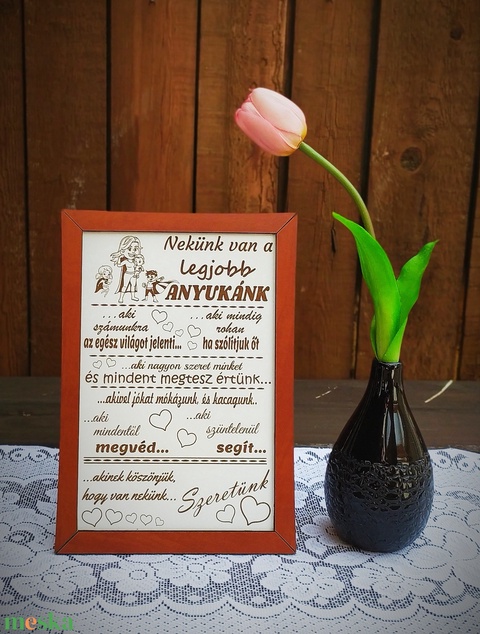 Nekünk van a
legjobb
ANYUKÁNK
...aki
számunkra
az egész világot jelenti...
...aki mindig
rohan
ha szólítjuk őt
...aki nagyon szeret minket
és mindent megtesz értünk...
...akivel jókat mókázunk, és kacagunk..
...aki
mindentől
megvéd...
...aki
szüntelenül
segít...
...akinek köszönjük,
hogy van nekünk...
Szeretünk
meska